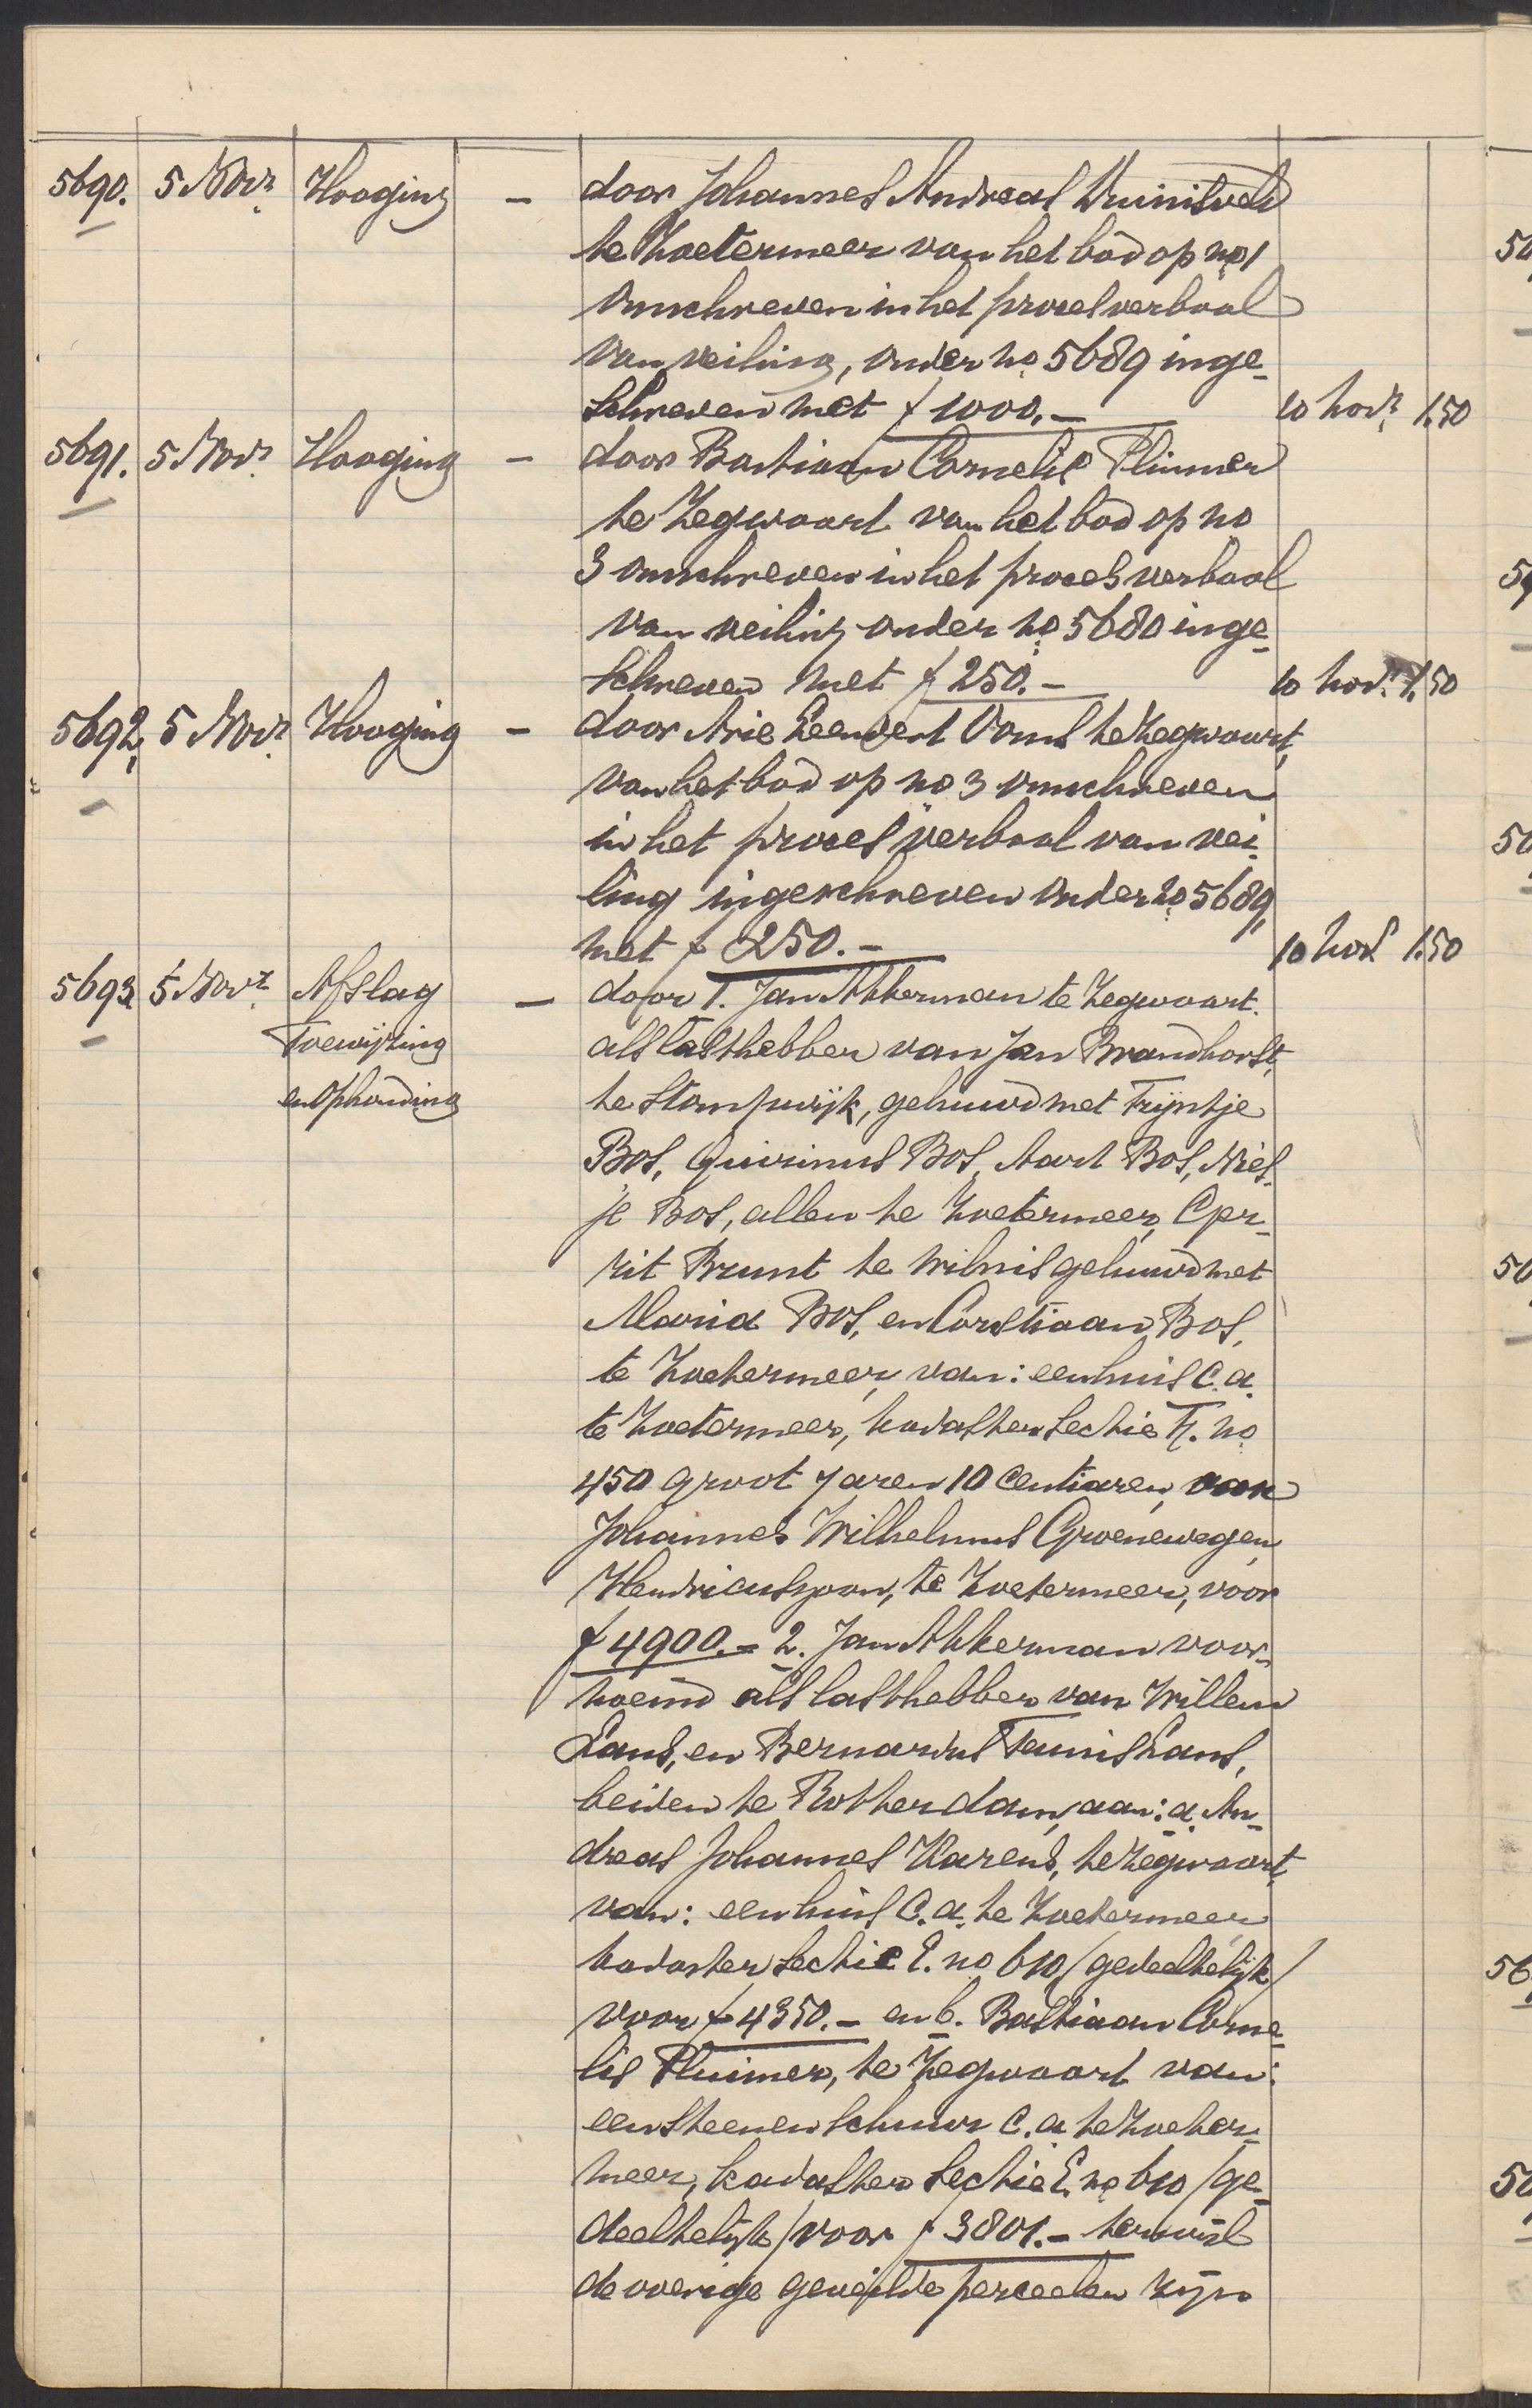 5690. 5 Novr. Hooging - door Johannes Andreas Duinisveld
te Zoetermeer van het bod op no 1
omschreven in het proces verbaal
van veiling, onder no 5689 inge-
schreven met f 1000.- 10 novr. 1.50
5691. 5 Novr. Hooging - door Bastiaan Cornelis Pluimer
te Zegwaart van het bod op no
3 omschreven in het proces verbaal
van veiling onder no 5680 inge-
schreven met f 250.- 10 nov. 1.50
5692, 5 Novr. Hooging - door Arie Leendert Vons te Zegwaart,
van het bod op no 3 omschreven
in het proces verbaal van vei-
ling ingeschreven onder no 5689,
met f 250.- 10 nov. 1.50
5693. 5 Novr. Afslag - door 1. Jan Akkerman te Zegwaart.
Toewijzing als lasthebber van Jan Brandhorst,
en Ophouding te Stompwijk, gehuwd met Trijntje
Bos, Quirinus Bos, Aart Bos, Nies-
je Bos, allen te Zoetermeer, Ger-
rit Brunt te Wilnis gehuwd met
Maria Bos, en Corstiaan Bos,
te Zoetermeer, van: een huis c.a.
te Zoetermeer, kadaster Sectie no
450 groot 7 aren 10 Centiaren, aan
Johannes Wilhelmus Groenewegen
Hendricuszoon, te Zoetermeer, voor
f 4900.- 2. Jan Akkerman voor-
noemd als lasthebber van Willem
Lans, en Bernardus Teunis Lans,
beiden te Rotterdam, aan: a. An-
dreas Johannes Karens, te Zegwaart,
van: een huis c.a. te Zoetermeer
kadaster Sectie E. no 610 /gedeeltelijk/
voor f 4350.- en b. Bastiaan Corne-
lis Pluimer, te Zegwaart van:
een steenen schuur c.a. te Zoeter-
meer, kadaster Sectie E. no 610 /ge-
deeltelijk/ voor f 3801.- terwijl
de overige geveilde perceelen zijn